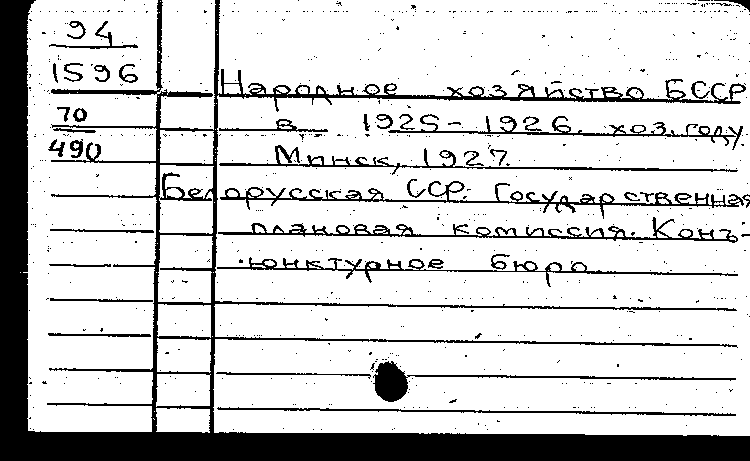 94
1596
70
490
Народное хозяйство БССР
в 1925-1926. хоз. году.
Минск, 1927.
Белорусская ССР. Государственная
плановая комиссия. Конъ-
юнктурное бюро